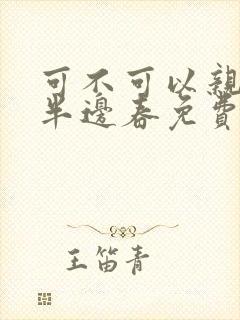 可不可以親
半邊春免費
王笛青